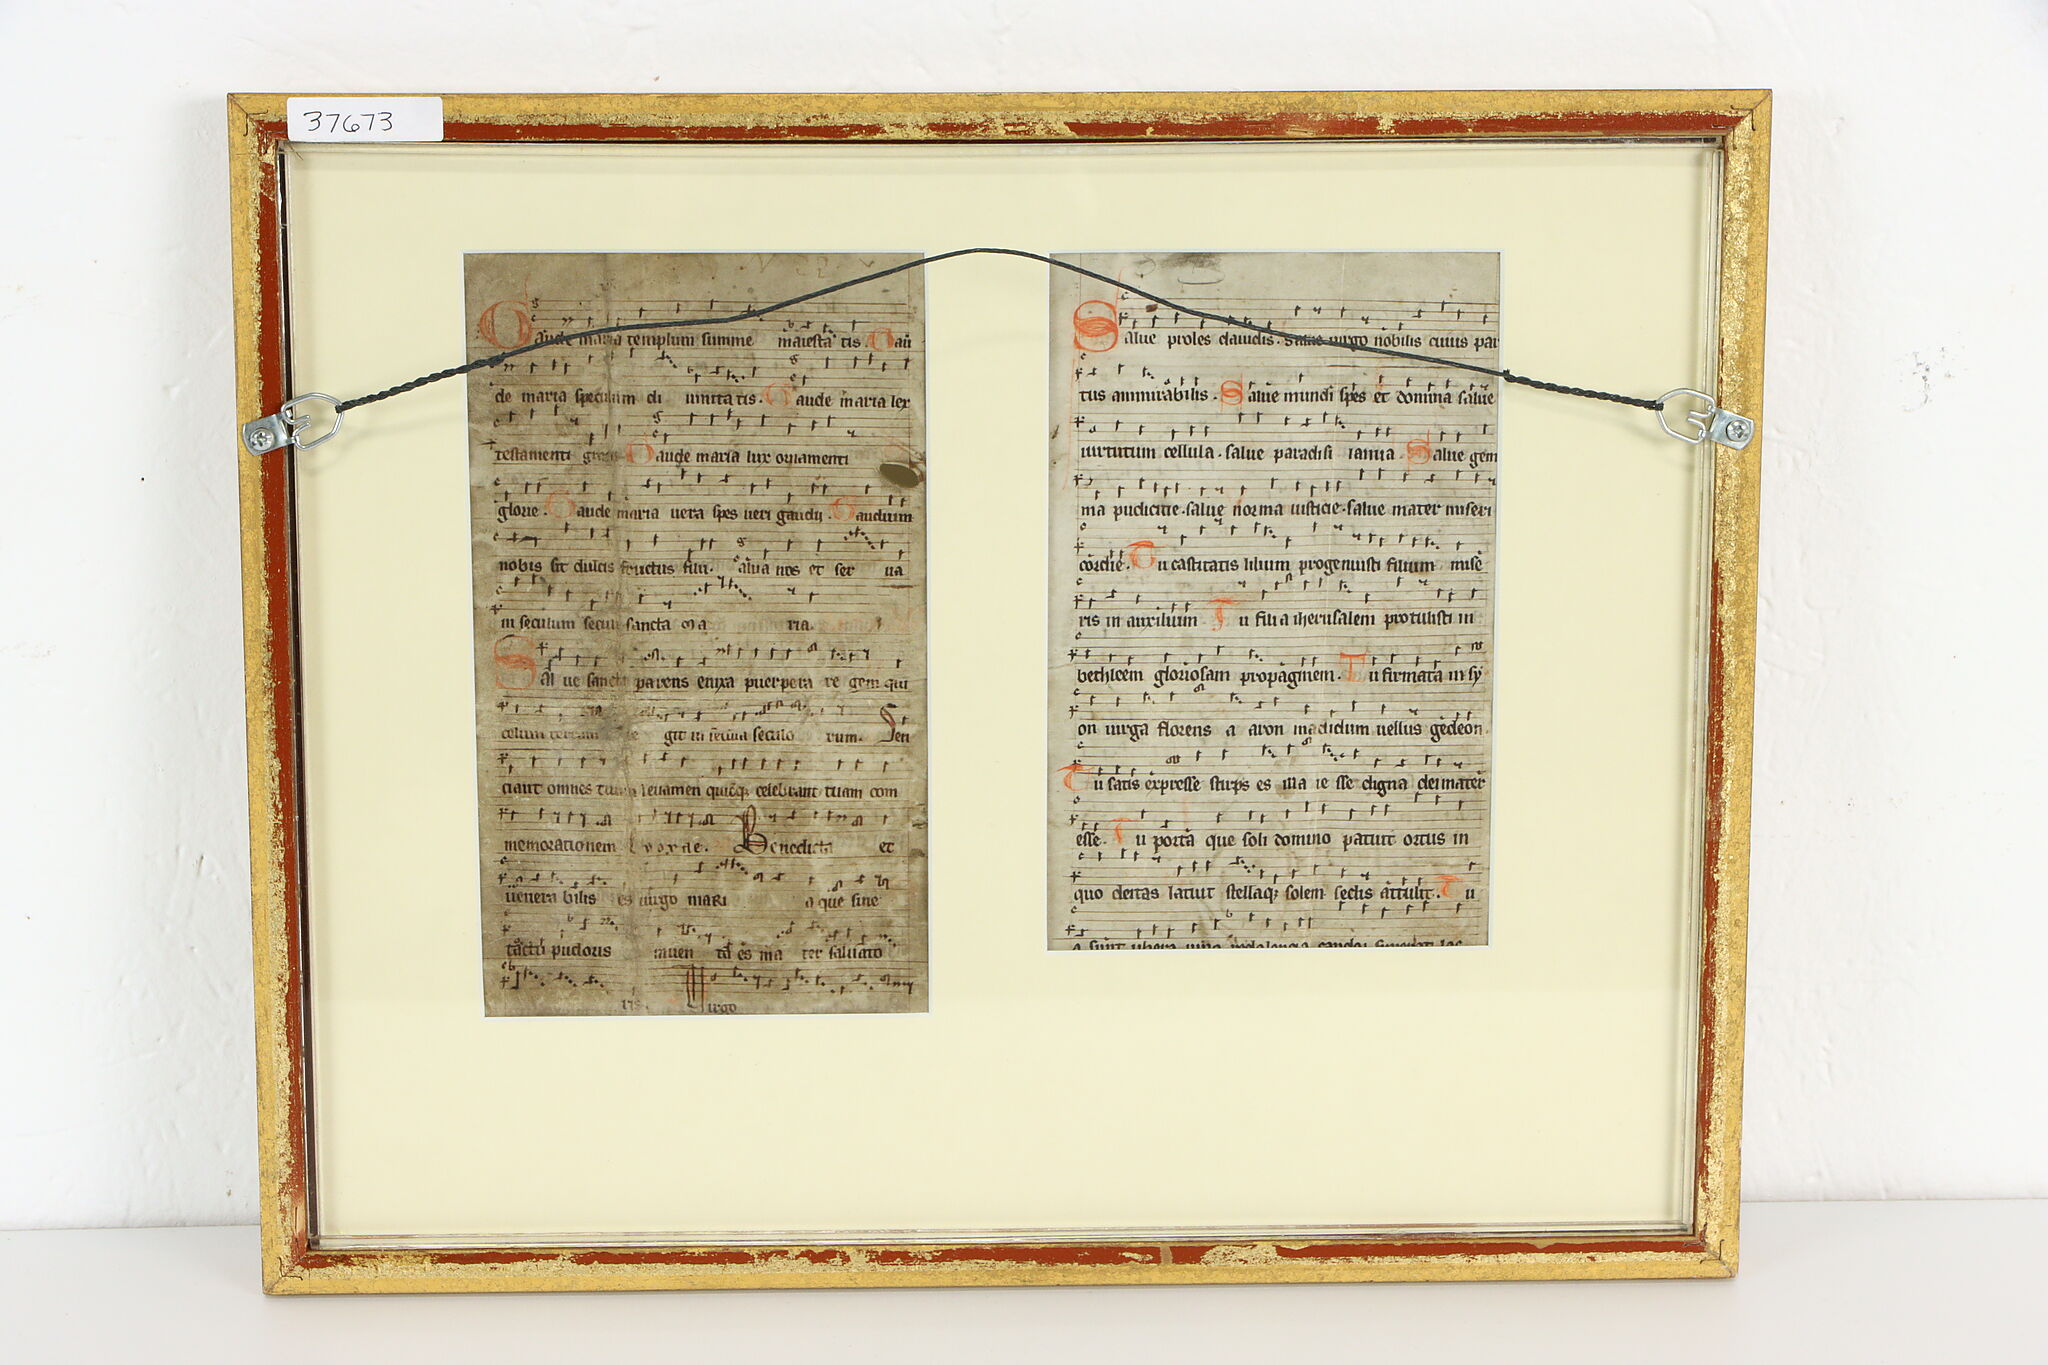 37673
Gaude maria templum summe maiesta tis. Gau
de maria speculum di uinita tis. Gaude maria lex
testamenti Gaude maria lux ornamenti
glorie. Gaude maria uera spes ueri gaudij. Gaudium
nobis sit dulcis fructus filii. Salua nos et ser ua
in seculum seculi sancta Ma ria.
Sal ue sancta parens enixa puerpera re gem qui
celum terram git in secula seculo rum. Sen
ciant omnes tuum leuamen quicūq; celebrant tuam com
memorationem Benedicta et
uenera bilis es uirgo mari a que sine
tactu pudoris inuen ta es ma ter saluato
Virgo
Salue proles dauidis. Salue uirgo nobilis cuius par
tus ammirabilis. Salue mundi spes et domina salue
uirtutum cellula. salue paradisi ianua. Salue gem
ma pudicitie. salue norma iusticie. salue mater miseri
cordie. Tu castitatis lilium progenuisti filium mise
ris in auxilium Tu filia iherusalem protulisti in
bethleem gloriosam propaginem. Tu firmata in sy
on uirga florens a aron madidum uellus gedeon.
Tu satis expresse stirps es ma ie sse digna dei mater
esse. Tu porta que soli domino patuit ortus in
quo deitas latuit stellaq; solem seclis attulit. Tu